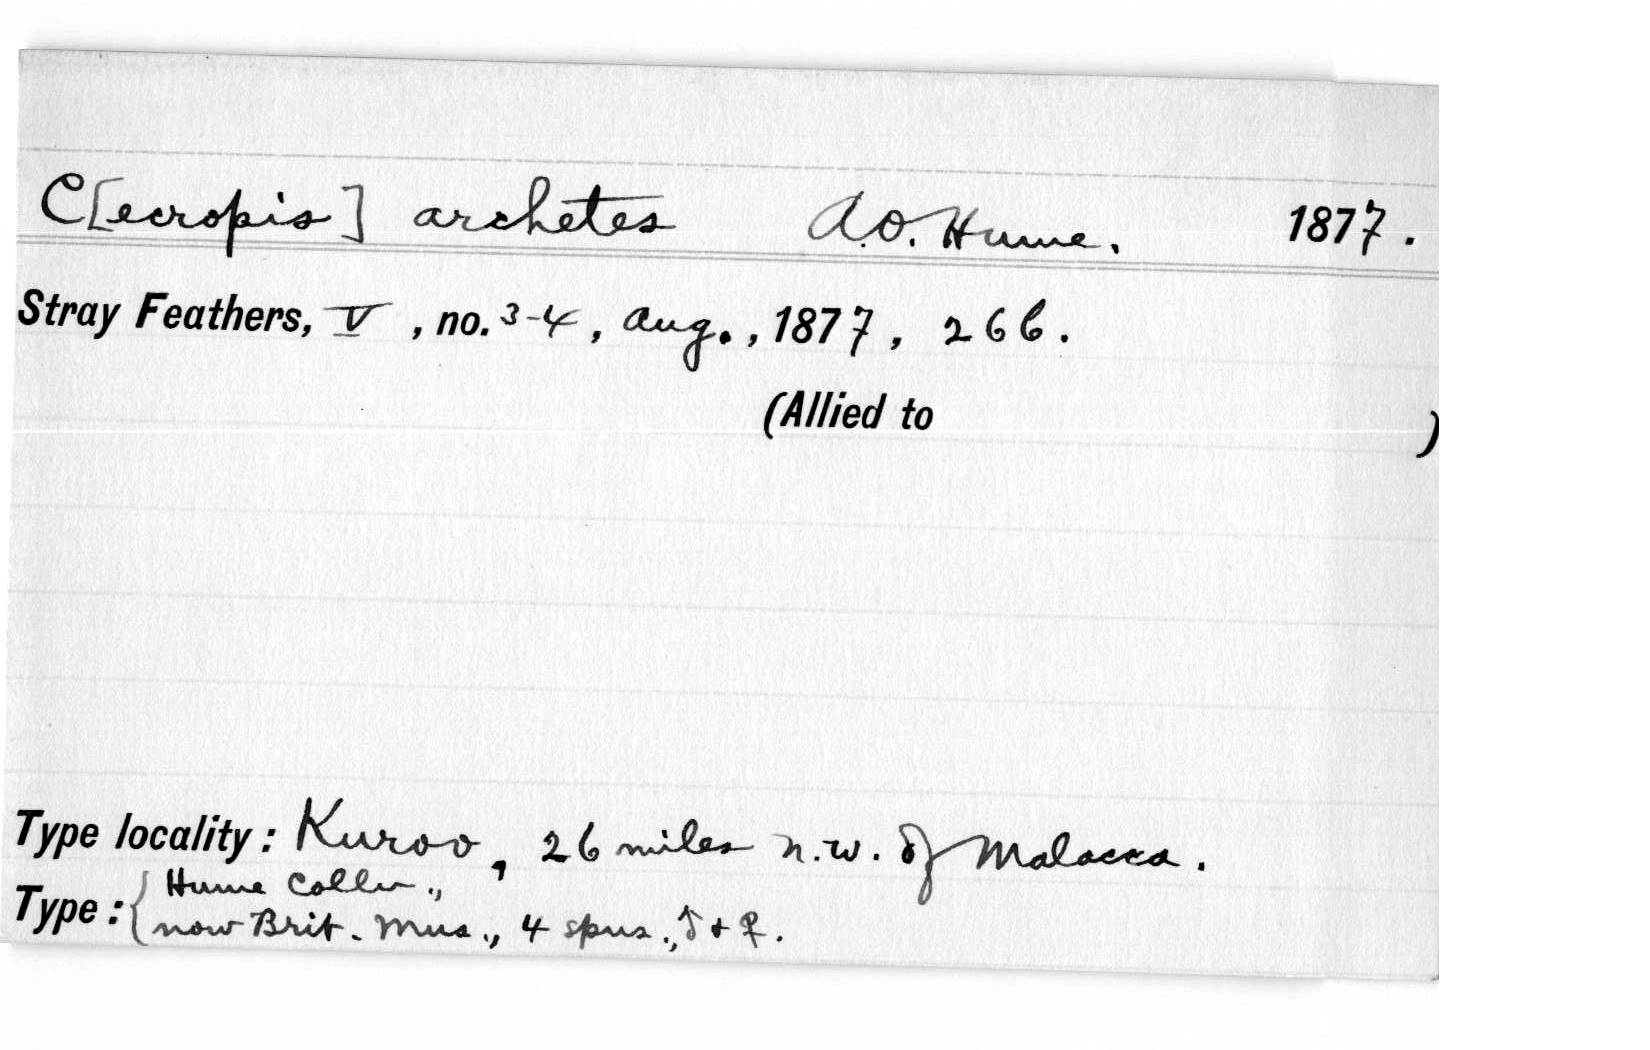 C[ecropis] archetes A.O. Hume. 1877.
Stray Feathers, V, no. 3-4, Aug., 1877, 266.
(Allied to )
Type locality: Kuroo, 26 miles n.w. of Malacca.
Type: { Hume Colln.,
now Brit. Mus., 4 spns., ♂ + ♀.